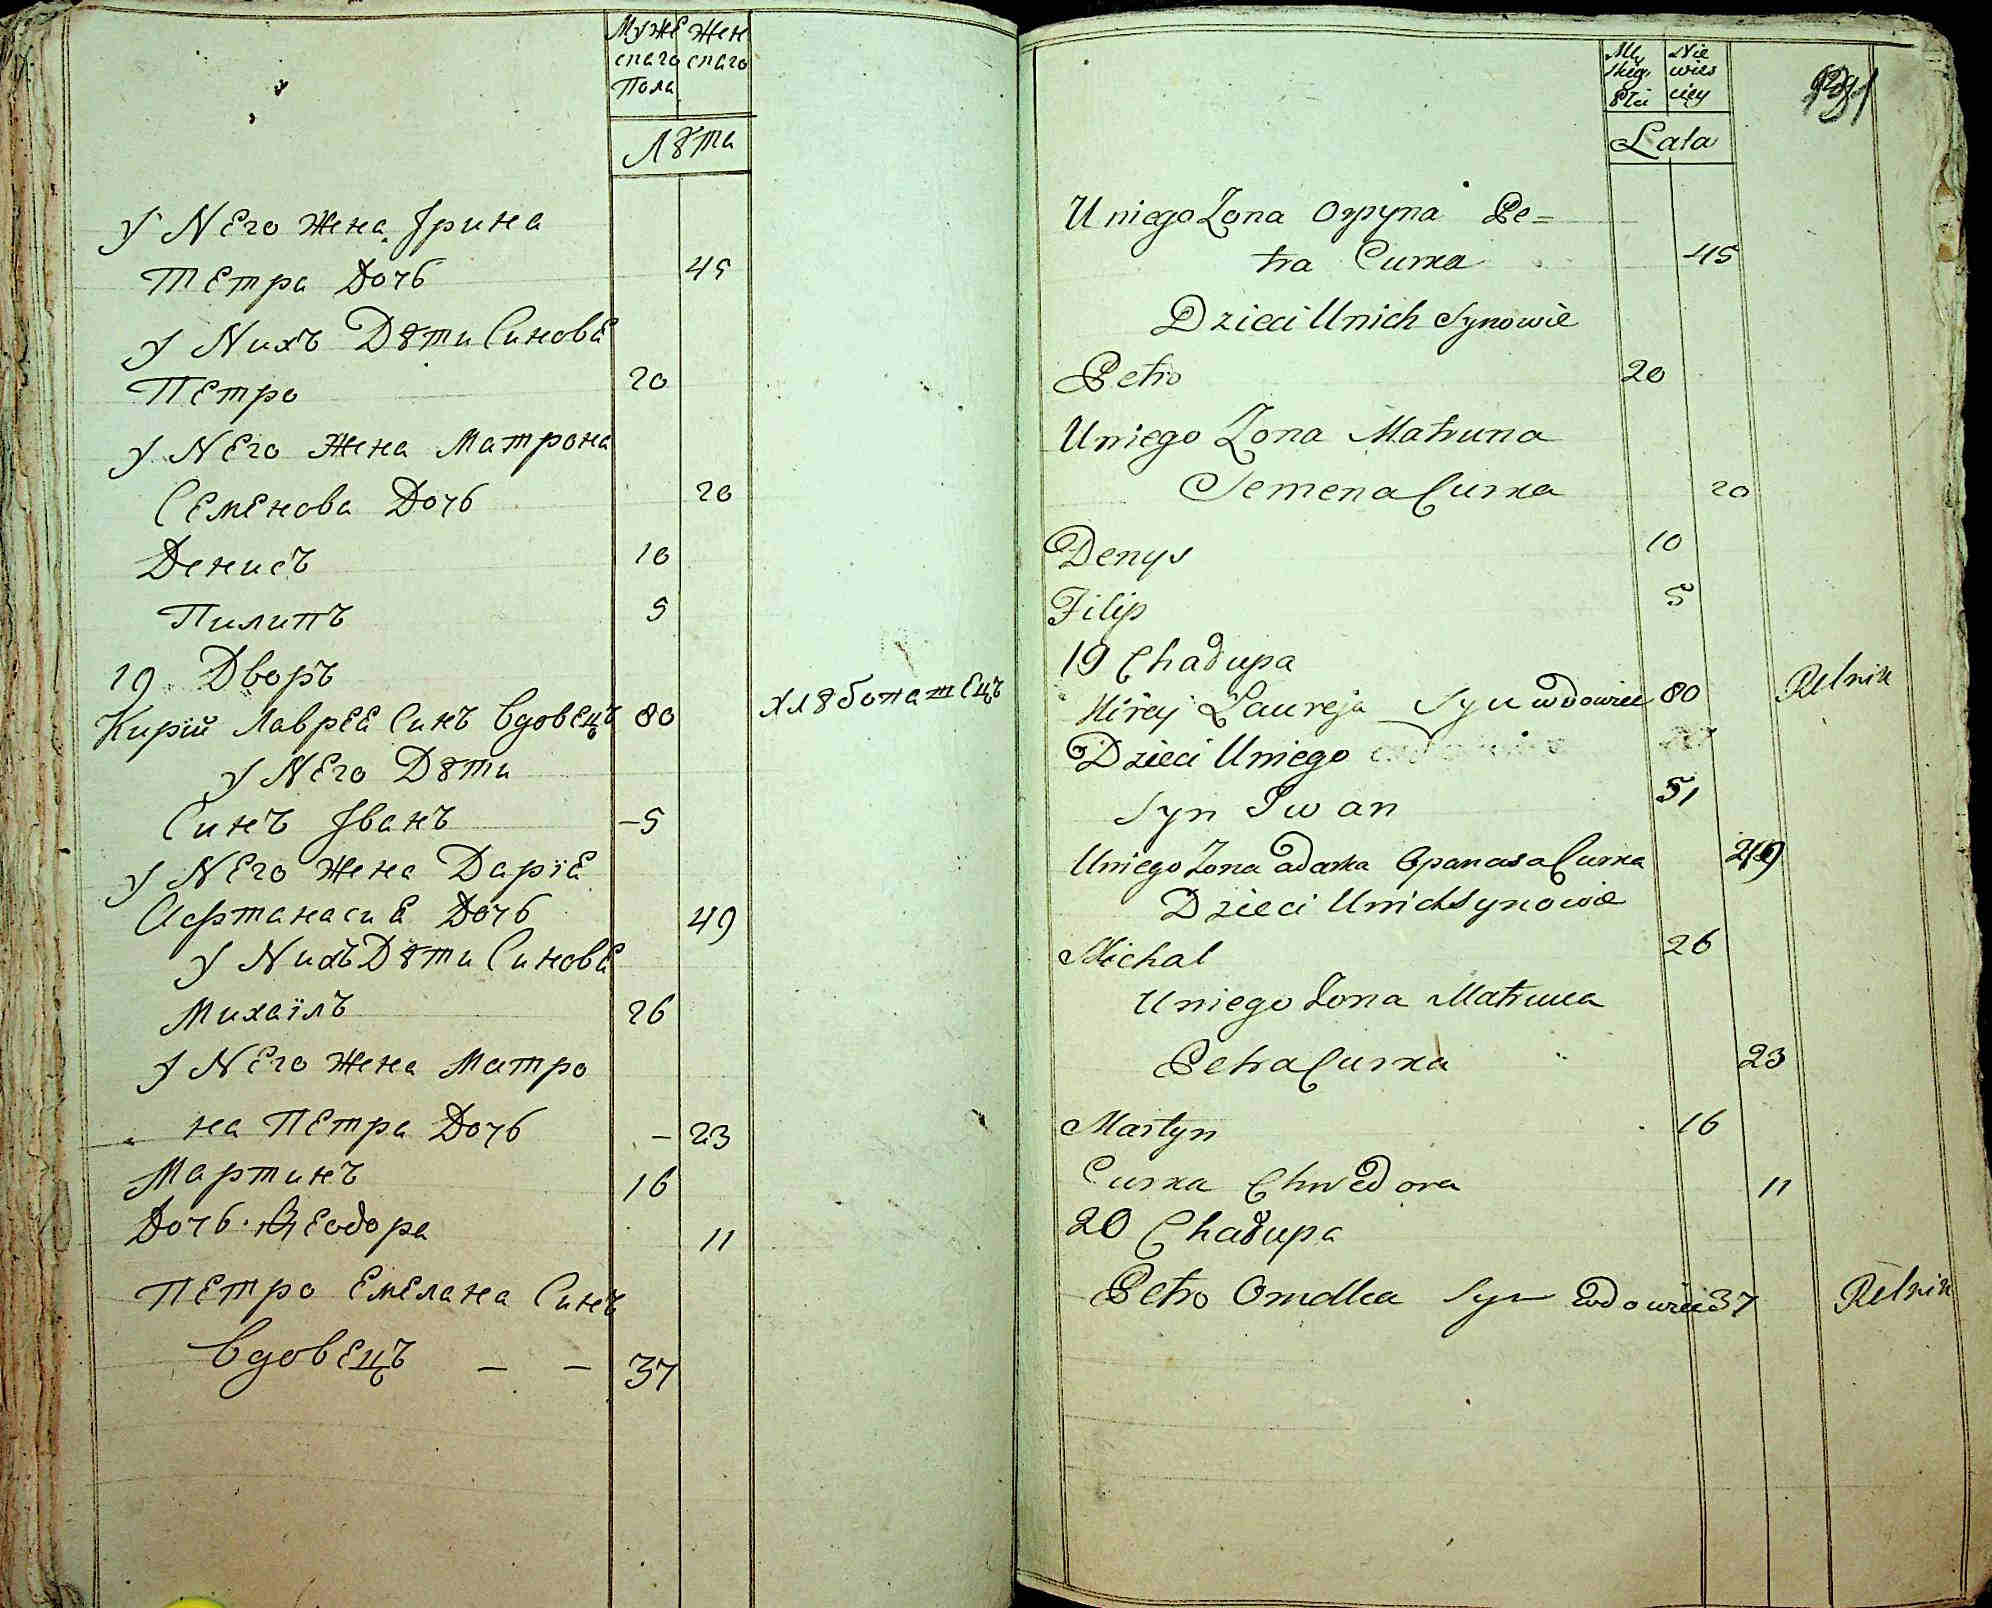 Муже Жен
скаго скаго
Пола
Лѣта
У Него Жена Ірина
Петра Дочь 45
У Нихъ Дѣти Синове
Петро 20
У Него Жена Матрона
Семенова Дочь 20
Денисъ 10
Пилипъ 5
19 Дворъ
Кирій Лаврее Синъ Вдовецъ 80 Хлѣбопашецъ
У Него Дѣти
Синъ Іванъ – 5
У Него Жена Даріе
Афтанасие Дочь 49
У Нихъ Дѣти Синове
Михаілъ 26
У Него Жена Матро
на Петра Дочь – 23
Мартинъ 16
Дочь Ѳеодора 11
Петро Емелана Синъ
Вдовецъ – – 37
Mę Nie
skiej wies
Płci ciey
Lata
U niego Zona Orpyna Pe=
tra Curka 45
Dzieci Unich Synowie
Petro 20
Uniego Zona Matruna
Semena Curka 20
Denys 10
Filip 5
19 Chałupa
Kirej Laureja Syn wdowiec 80 Rolnik
Dzieci Uniego
Syn Iwan 51
Uniego Zona Odarka Opanasa Curka 49
Dzieci Unich Synowie
Michal 26
Uniego Zona Matruna
Petra Curka 23
Martyn 16
Curka Chwedora 11
20 Chałupa
Petro Omelka Syn wdowiec 37 Rolnik